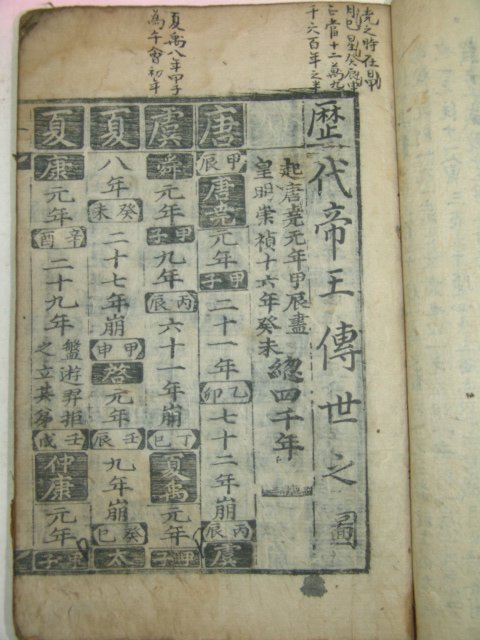 堯之時在日甲
月巳星癸辰申
正當十二萬九
千六百年之半
夏禹八年甲子
爲午會初年
歷代帝王傳世之圖
起唐堯元年甲辰盡
皇明崇禎十六年癸未總四千年
唐甲辰唐堯元年甲子二十一年乙卯七十二年崩丙辰虞
虞舜元年甲子九年丙辰六十一年崩丁巳夏禹元年甲子
夏八年癸未二十七年崩甲申啓元年壬辰九年崩癸巳太
夏康元年辛酉二十九年盤游羿拒之立其弟壬戌仲康元年甲子